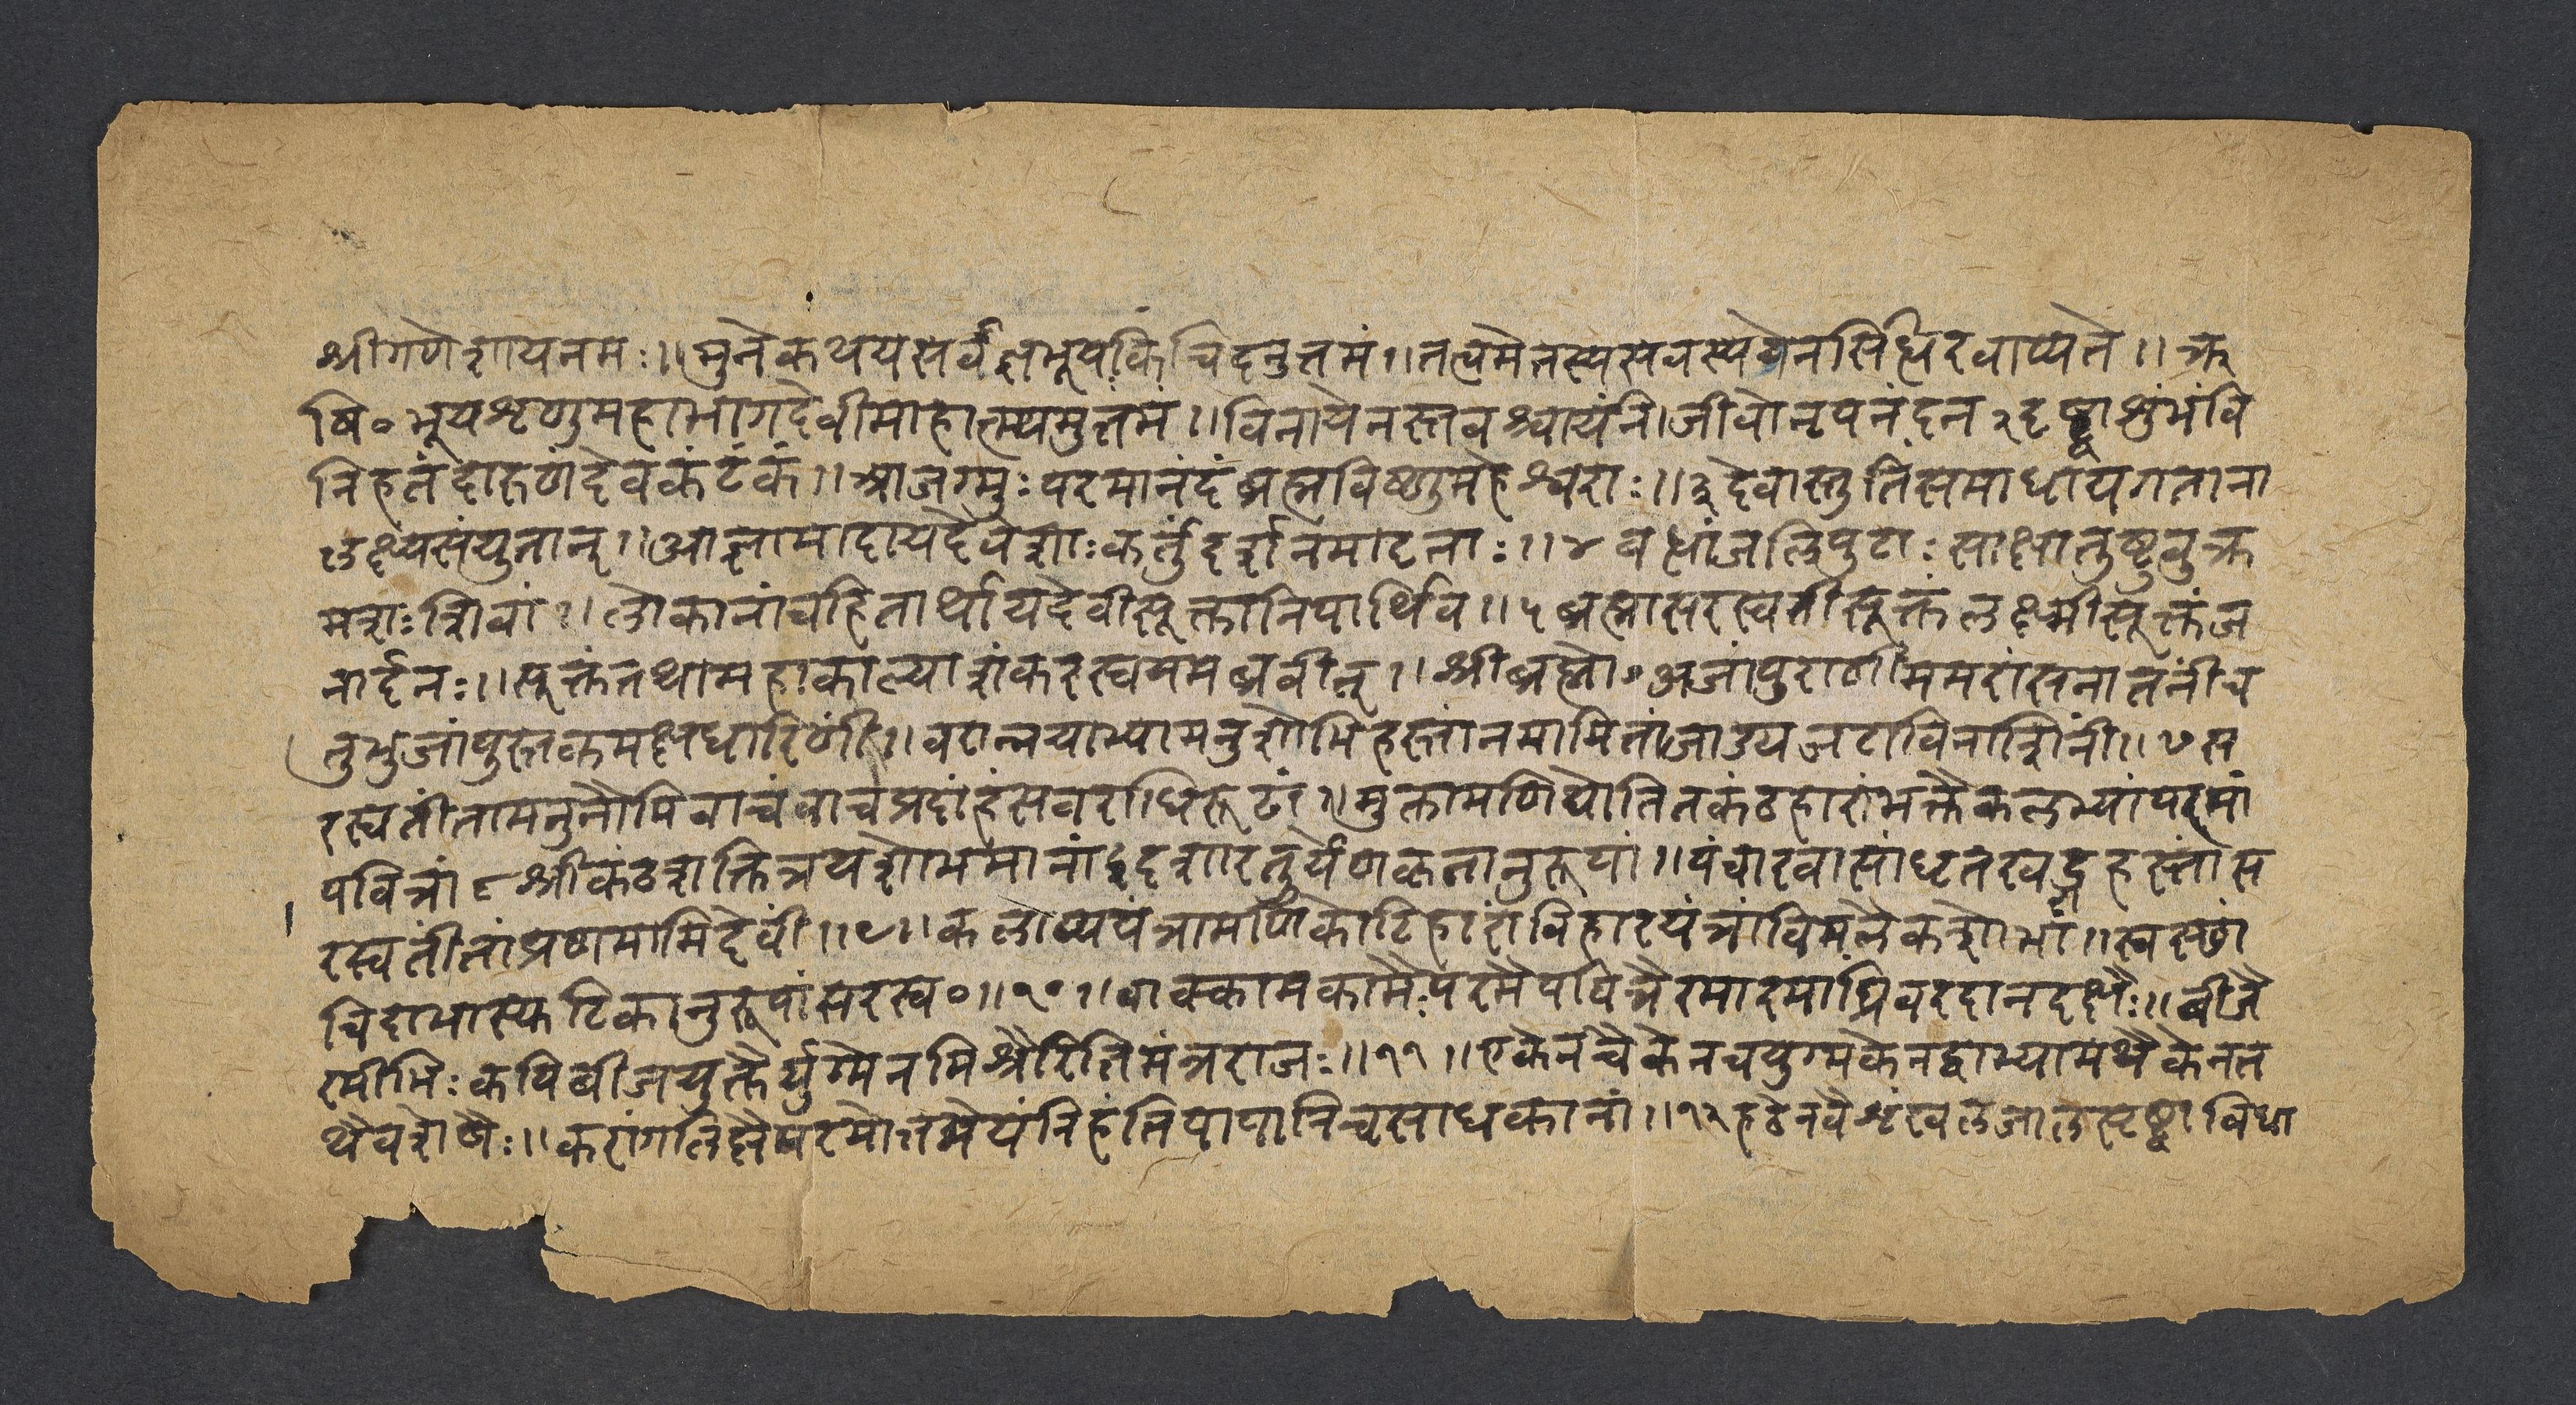 श्रीगणेशायनमः॥मुनेकथयसर्वज्ञभूयकिंचिदनुत्तमं॥तत्वमेतस्यसवस्ययेनसिद्धिरवाप्यते॥ऋ
षि॰भूयशृणुमहाभागदेवीमाहात्म्यमुत्तमं॥विनायेनस्तवश्चायंनिर्जीवोनृपनंदन२दृष्ट्वाशुंभंवि
निहतंदारुणंदेवकंटकं॥आजग्मुःपरमानंदंब्रह्मविष्णुमहेश्वराः॥३देवास्तुतिंसमाधायगताना
लक्ष्यसंयुतान्॥आज्ञामादायदेवेशाःकर्तुंदर्शनमादृताः॥४बद्धांजलिपुटाःसाक्षातुष्टुवुःक्र
मशःशिवां॥लोकानांचहितार्थायदेवीसूक्तानिपार्थिव॥५ब्रह्मासरस्वतीसूक्तंलक्ष्मीसूक्तंज
नार्दनः॥सूक्तंतथामहाकाल्याशंकरस्वयमब्रवीत्॥श्रीब्रह्मो॰अजांपुराणीममरांसनातनींच
तुर्भुजांपुस्तकमक्षधारिणीं॥वरान्नयाभ्यामनुशोभिहस्तांनमामितांजाड्यजटाविनाशिनीं॥७स
रस्वतींतामनुनौमिवाचंवाचप्रदांहंसवराधिरूढां॥मुक्तामणिद्योतितकंठहारांभक्तैकलभ्यांपरमां
पवित्रां८श्रीकंठशक्तित्रयशोभमानांद्विदशारतुर्येणकृतानुरूपां॥पंचारवासांधृतखड्गहस्तांस
रस्वतींतांप्रणमामिदेवीं॥९॥कलाप्ययंत्रामणिकोटिहारांविहारयंत्रांविमलैकशोभां॥स्वसृष्टां
चिदाभास्फटिकानुरूपांसरस्व॰॥१०॥वाक्कामकामैःपरमैपवित्रैरमारमाभिवरदानदक्षैः॥बीजै
रमीभिःकपिबीजयुक्तैर्युग्मेनमिश्रैरितिमंत्रराजः॥११॥एकेनचैकेनचयुग्मकेनद्वाभ्यामथैकेनत
थैवशेषैः॥करांगलिक्षैपरमोत्तमेयंनिहंतिपापानिचसाधकानां॥१२हठेनवैशृंखलजालसृष्ट्वाविधा